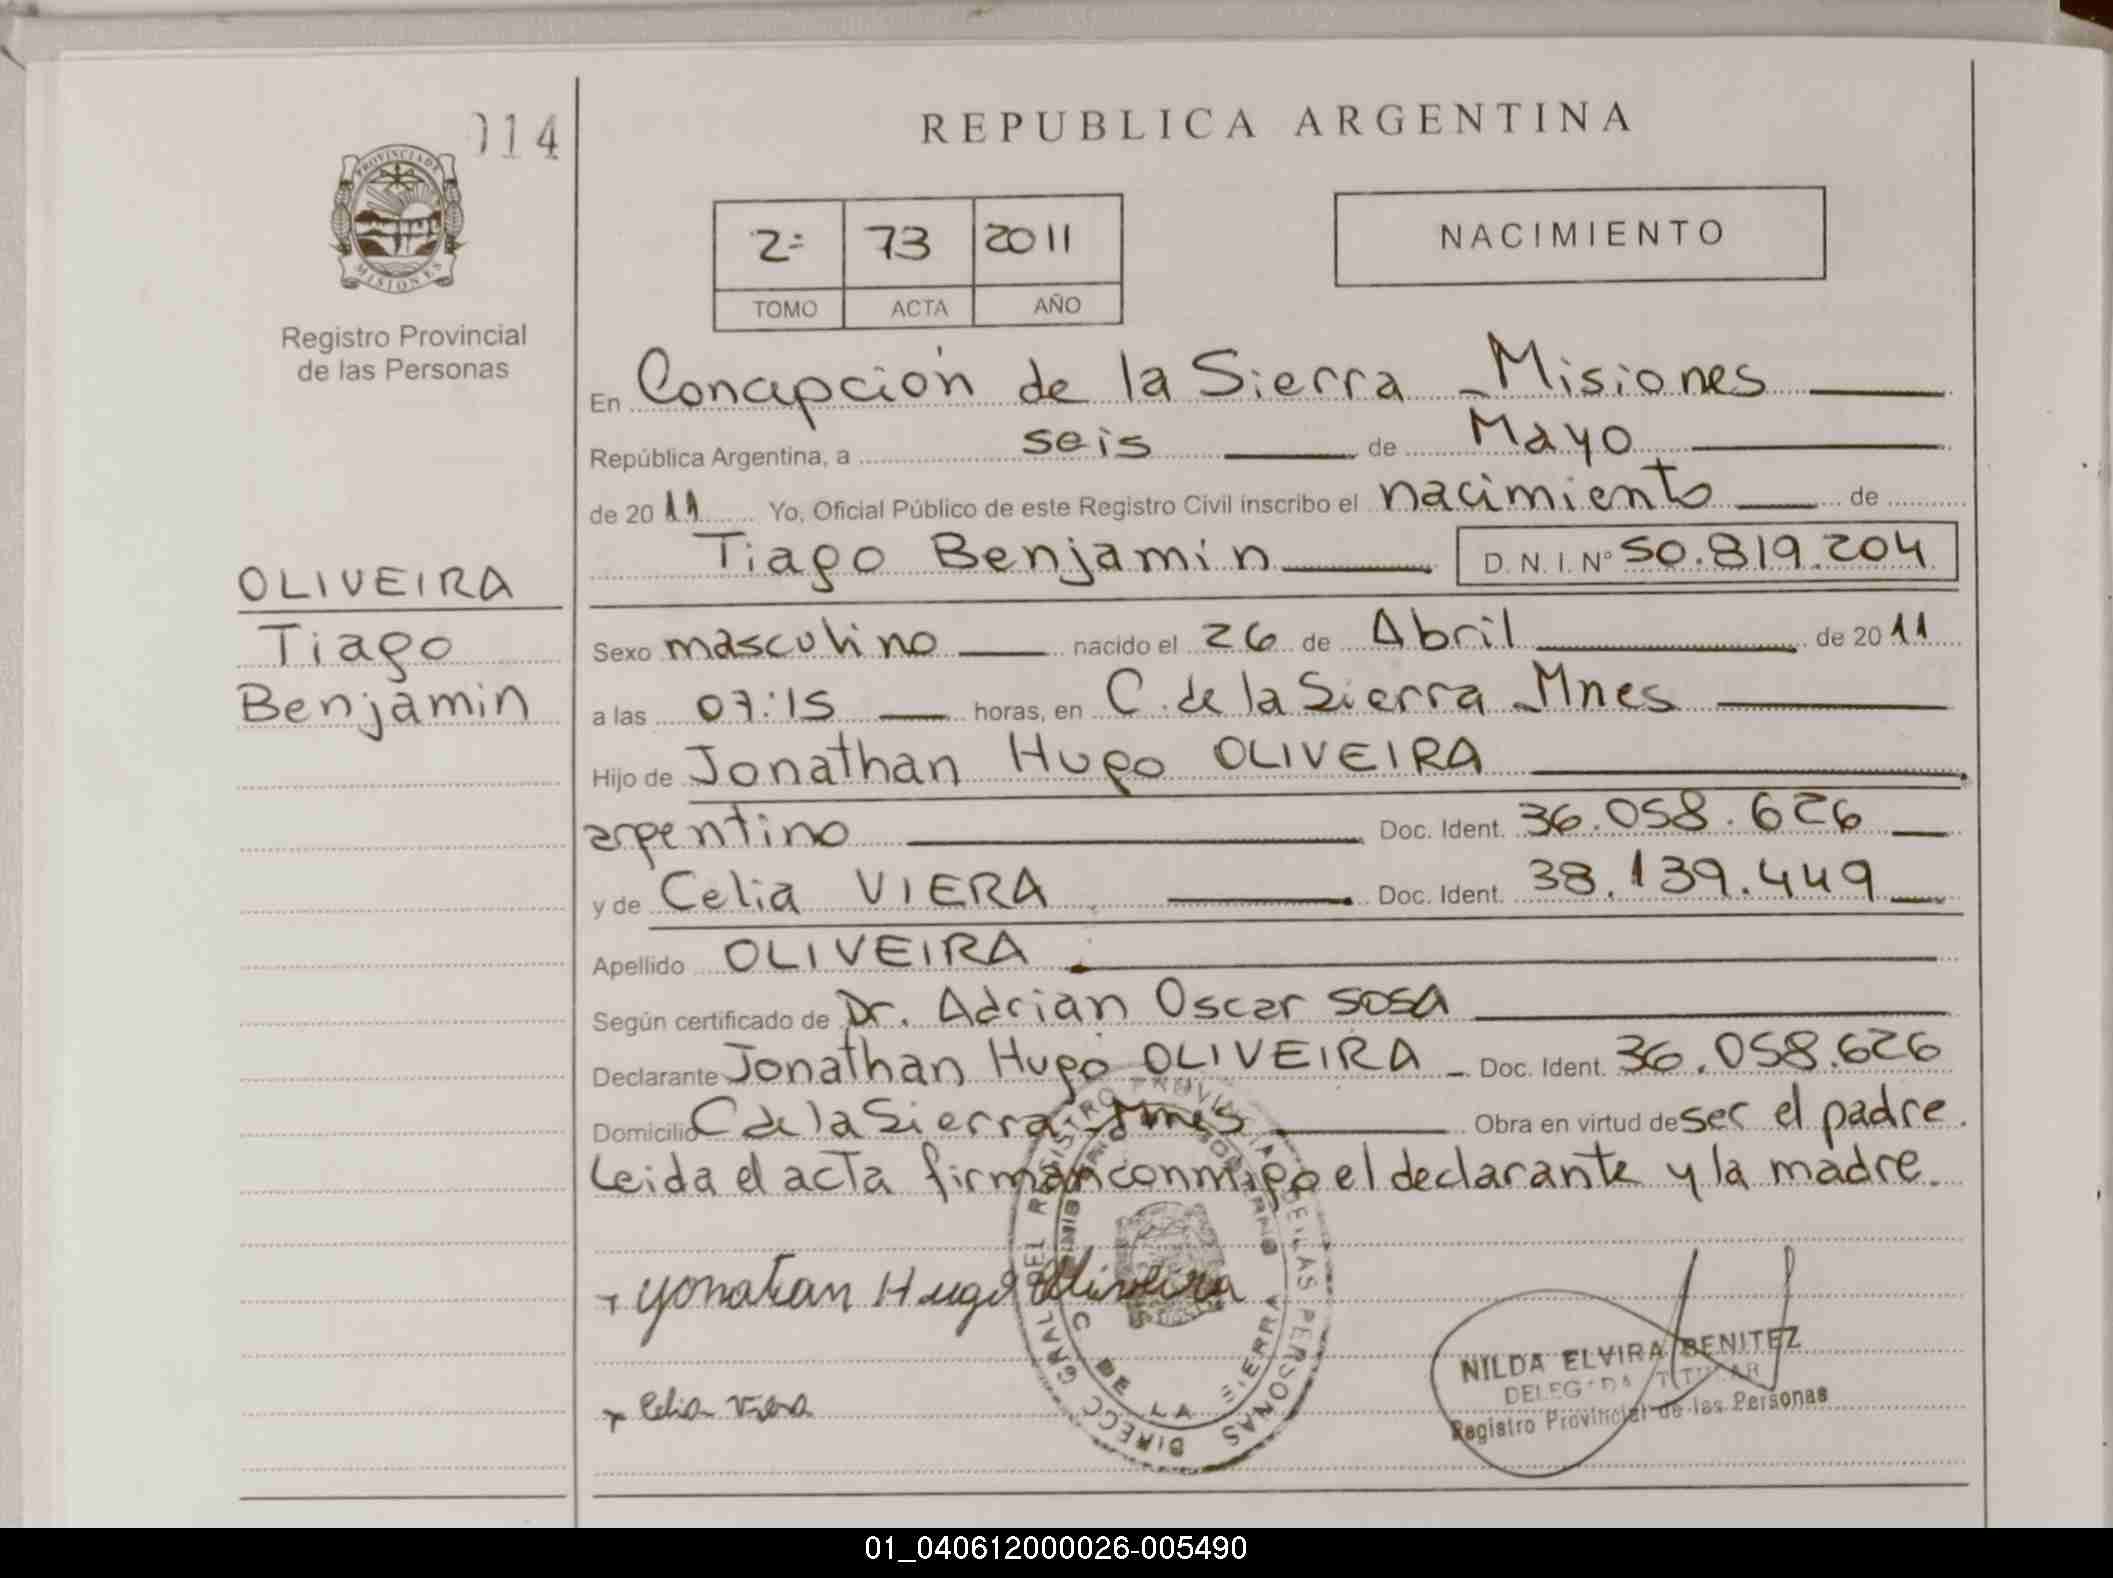 014
REPUBLICA ARGENTINA
PROVINCIA DE
MISIONES
2= 73 2011
TOMO ACTA AÑO
NACIMIENTO
Registro Provincial
de las Personas
En Concepción de la Sierra - Misiones
República Argentina, a seis de Mayo
de 2011 Yo, Oficial Público de este Registro Civil inscribo el nacimiento de
Tiago Benjamin D. N. I. Nº 50.819.204
OLIVEIRA
Tiago
Benjamin
Sexo masculino nacido el 26 de Abril de 2011
a las 07:15 horas, en C. de la Sierra - Mnes
Hijo de Jonathan Hugo OLIVEIRA
argentino Doc. Ident. 36.058.626
y de Celia VIERA Doc. Ident. 38.139.449
Apellido OLIVEIRA
Según certificado de Dr. Adrian Oscar SOSA
Declarante Jonathan Hugo OLIVEIRA - Doc. Ident. 36.058.626
Domicilio C de la Sierra - Mnes Obra en virtud de ser el padre.
Leida el acta firman conmigo el declarante y la madre.
Yonatan Hugo Oliveira
Celia Viera
DIRECC GRAL DEL REGISTRO PROVINCIAL DE LAS PERSONAS
C DE LA SIERRA
NILDA ELVIRA BENITEZ
DELEGADA TITULAR
Registro Provincial de las Personas
01_040612000026-005490